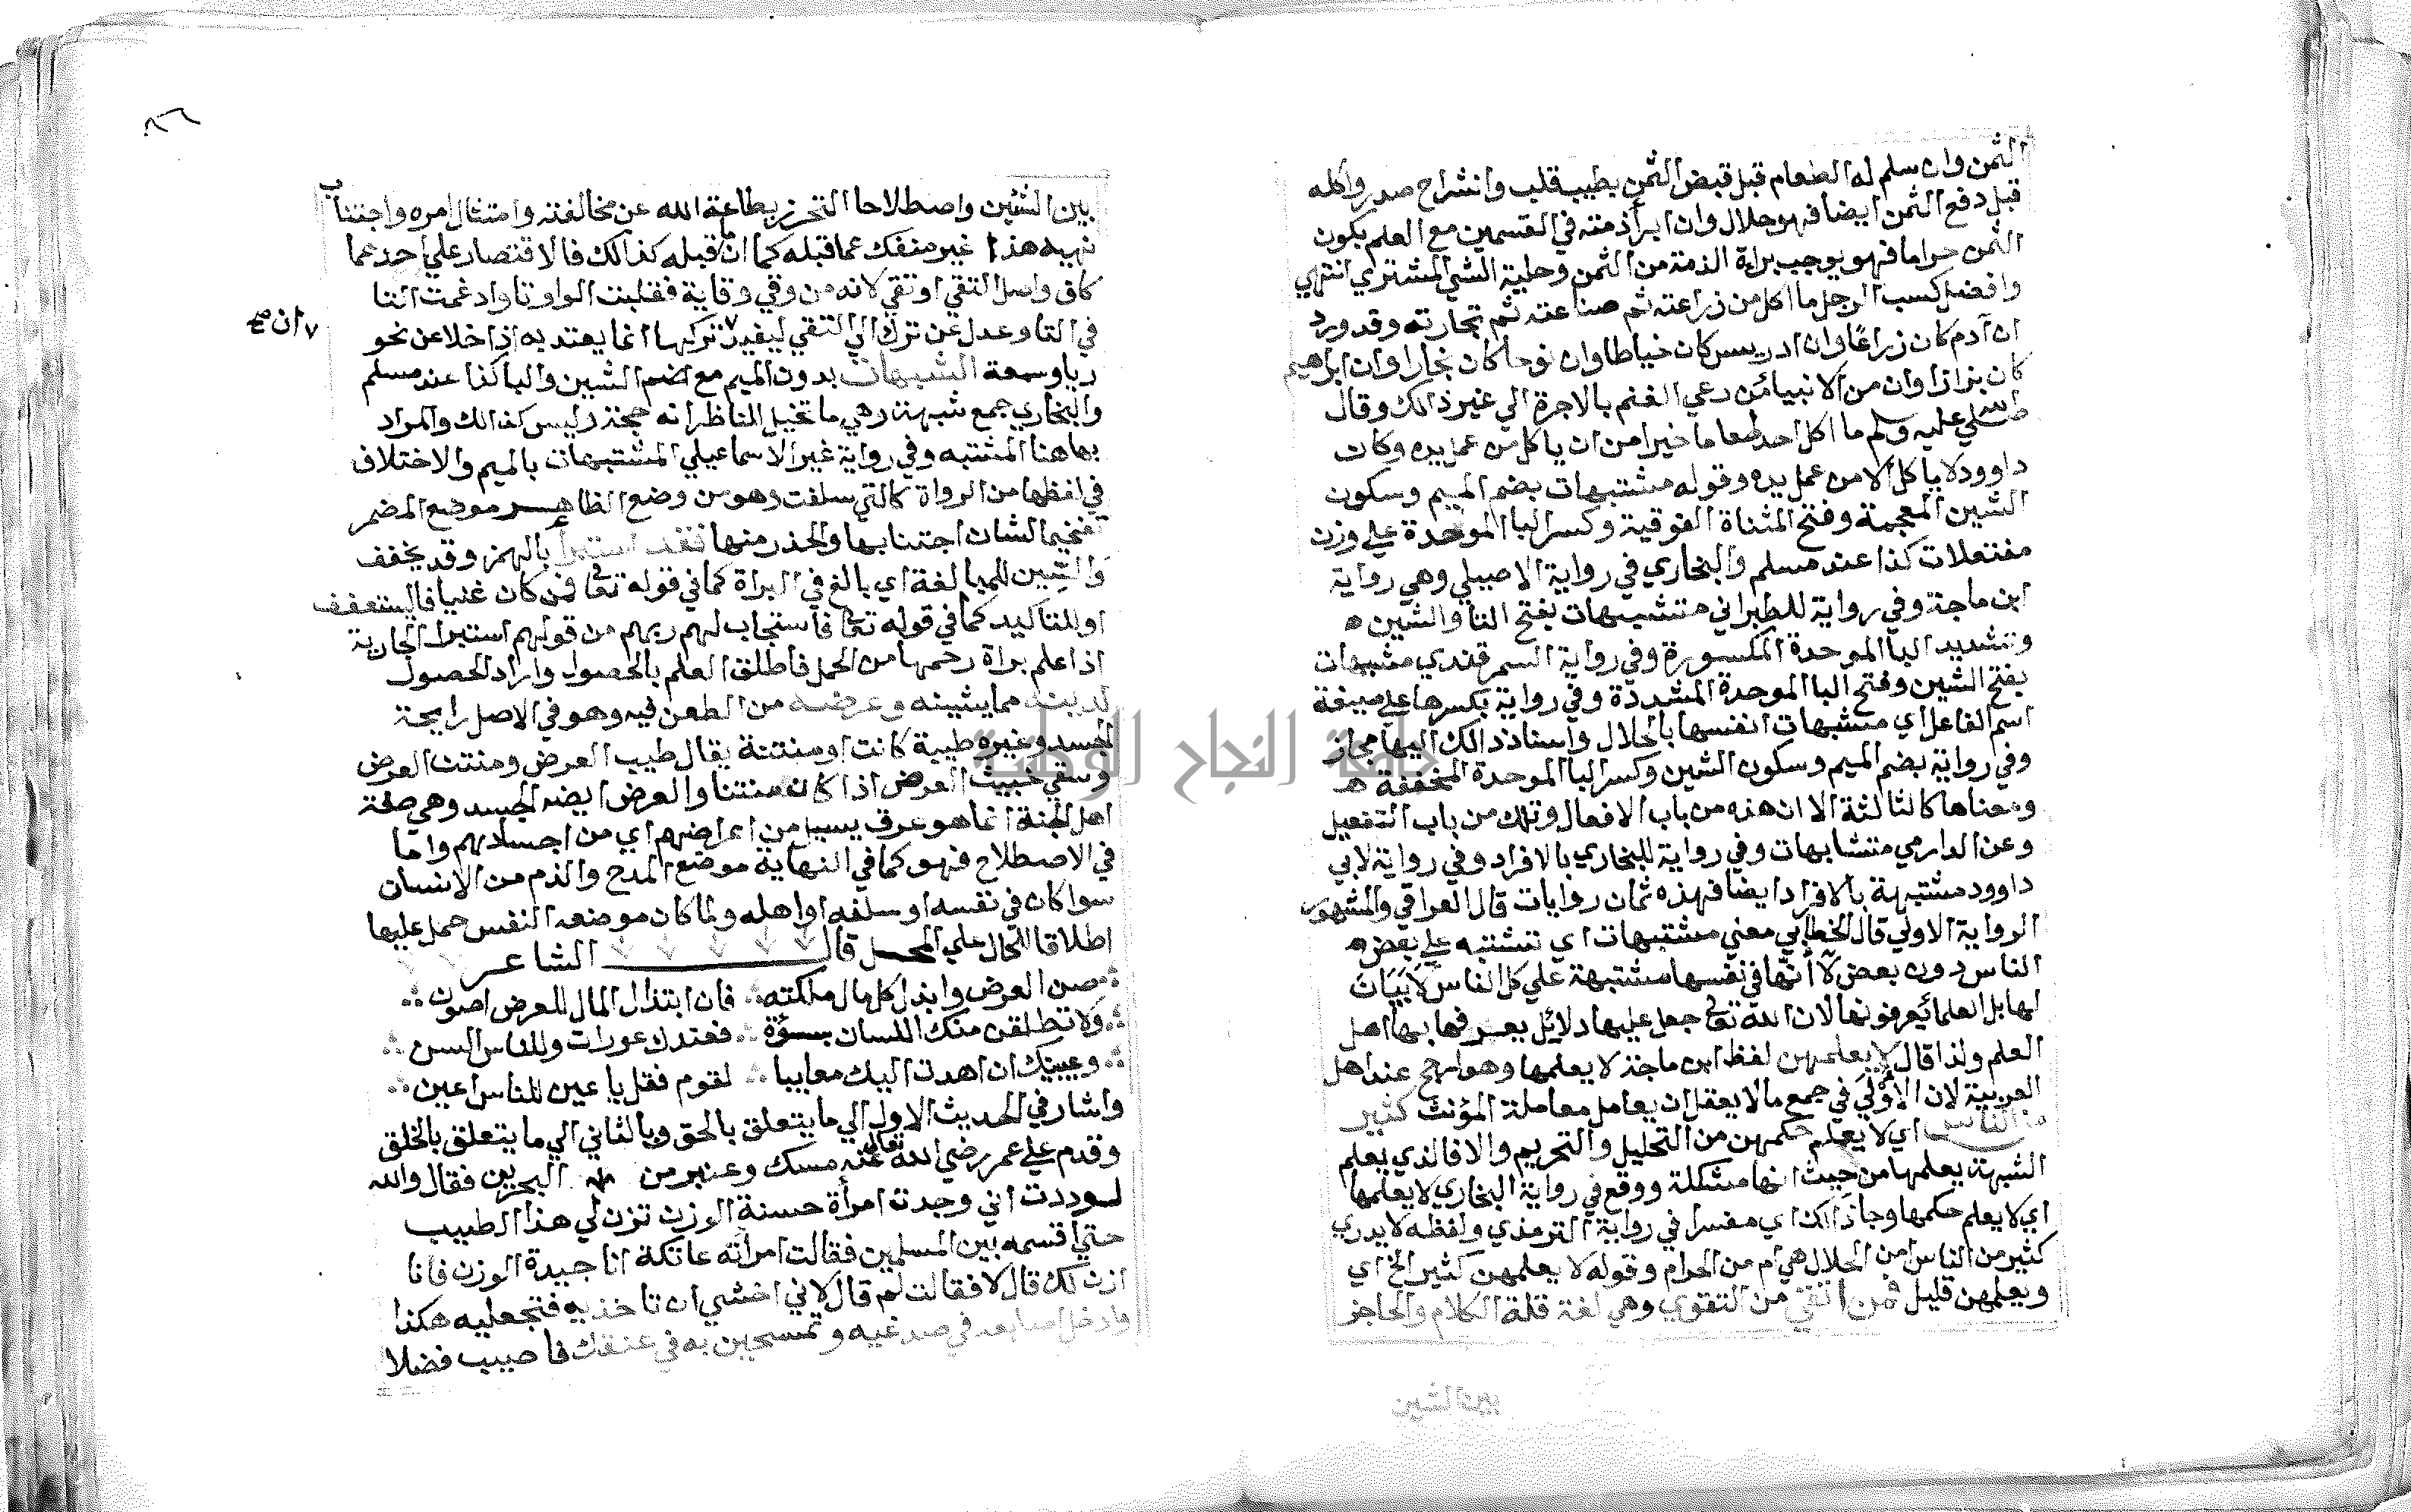 الثمن وان سلم له الطعام قبل قبض الثمن بطيب قلب وانشراح صدر واكله
قبل دفع الثمن ايضا فهو حلال وان ابرأ ذمته في القسمين مع العلم بكون
الثمن حراما فهو يوجب براة الذمة من الثمن وحلية الشي المشتري انتهي
وافضل كسب الرجل ما اكل من زراعته ثم صناعته ثم تجارته وقد ورد
ان آدم كان زراعا وان ادريس كان خياطا وان نوحا كان نجارا وان ابراهيم
كان بزازا وان من الانبيا من رعي الغنم بالاجرة الي غير ذالك وقال
صلي عليه وسلم ما اكل احد طعاما خيرا من ان ياكل من عمل يده وكان
داوود لا ياكل الا من عمل يده وقوله مشتبهات بضم الميم وسكون
الشين المعجمة وفتح المثناة الفوقية وكسر البا الموحدة علي وزن
مفتعلات كذا عند مسلم والبخاري في رواية الاصيلي وهي رواية
ابن ماجة وفي رواية للطبراني متشبهات بفتح التا والشين ه
وتشديد البا الموحدة المكسورة وفي رواية السمرقندي مشبهات
بفتح الشين وفتح البا الموحدة المشددة وفي رواية بكسرها علي صيغة
اسم الفاعل اي متشبهات انفسها بالحلال واسناد ذالك اليها مجاز
وفي رواية بضم الميم وسكون الشين وكسر البا الموحدة المخففة ه
ومعناها كالثالثة الا ان هذه من باب الافعال وتلك من باب التفعيل
وعن الدارمي متشابهات وفي رواية للبخاري بالافراد وفي رواية لابي
داوود مشتبهة بالافراد ايضا فهذه ثمان روايات قال العراقي والمشهور
الرواية الاولي قال الخطابي معني مشتبهات اي تشتبه علي بعض ه
الناس دون بعض لا أنها في نفسها مشتبهة علي كل الناس لا بيان
لها بل العلما يعرفونها لان الله تعالي جعل عليها دلائل يعرفها بها اهل
العلم ولذا قال لا يعلمهن لفظ ابن ماجة لا يعلمها وهو ارجح عند اهل
العربية لان الاولي في جمع ما لا يعقل ان يعامل معاملة المؤنث كثير
من الناس اي لا يعلم حكمهن من التحليل والتحريم والا فالذي يعلم
الشبهة يعلمها من حيث انها مشكلة ووقع في رواية البخاري لا يعلمها
اي لا يعلم حكمها وجا ذالك اي مفسرا في رواية الترمذي ولفظه لا يدري
كثير من الناس امن الحلال هي ام من الحرام وقوله لا يعلمهن كثير الخ اي
ويعلمهن قليل فمن اتقي من التقوي وهي لغة قلة الكلام والحاجز
بين الشئين
بين الشئين واصطلاحا التحرز بطاعة الله عن مخالفته وامتثال امره واجتناب
نهيه هذا غير منفك عما قبله كما ان ما قبله كذالك فالاقتصار علي احدهما
كاف واصل اتقي اوتقي لانه من وقي وقاية فقلبت الواو تا وادغمت التا
في التا وعدل عن ترك الي اتقي ليفيد تركها انما يعتد به اذا خلا عن نحو
٧ ان صح
ريا وسمعة الشبهات بدون الميم مع ضم الشين والبا كذا عند مسلم
والبخاري جمع شبهة وهي ما تخيل للناظر انه حجة وليس كذالك والمراد
بها هنا المشتبه وفي رواية غير الاسماعيلي المشتبهات بالميم والاختلاف
في لفظها من الرواة كالتي سلفت وهو من وضع الظاهر موضع المضمر
تفخيما لشان اجتنابها والحذر منها فقد استبرأ بالهمز وقد يخفف
والسين للمبالغة اي بالغ في البراة كما في قوله تعالي فمن كان غنيا فاليستعفف
او للتاكيد كما في قوله تعالي فاستجاب لهم ربهم من قولهم استبرا الجارية
اذا علم براة رحمها من الحمل فاطلق العلم بالحصول واراد الحصول
لدينه مما يشينه وعرضه من الطعن فيه وهو في الاصل رايحة
الجسد وغيره طيبة كانت او منتنة يقال طيب العرض ومنتن العرض
وسقي خبيث العرض اذا كان منتنا والعرض ايضا الجسد وهي صفة
اهل الجنة انما هو عرق يسيل من اعراضهم اي من اجسادهم واما
في الاصطلاح فهو كما في النهاية موضع المدح والذم من الانسان
سوا كان في نفسه او سلفه او اهله ولما كان موضعه النفس حمل عليها
اطلاقا للحال علي المحل قال الشاعر
صن العرض وابذل كل مال ملكته فان ابتذال المال للعرض اصون
ولا تطلقن منك اللسان بسوة فعندك عورات وللناس السن
وعينك ان اهدت اليك معايبا لقوم فقل يا عين للناس اعين
واشار في الحديث الاول الي ما يتعلق بالحق وبالثاني الي ما يتعلق بالخلق
وقدم علي عمر رضي الله تعالي عنه مسك وعنبر من البحرين فقال والله
لوددت اني وجدت امرأة حسنة الوزن تزن لي هذا الطيب
حتي اقسمه بين المسلمين فقالت امرأته عاتكة انا جيدة الوزن فانا
ازن لك قال لا فقالت لم قال لاني اخشي ان تاخذيه فتجعليه هكذا
وادخل اصابعه في صدغيه وتمسحين به في عنقك فاصيب فضلا
جامعة النجاح الوطنية